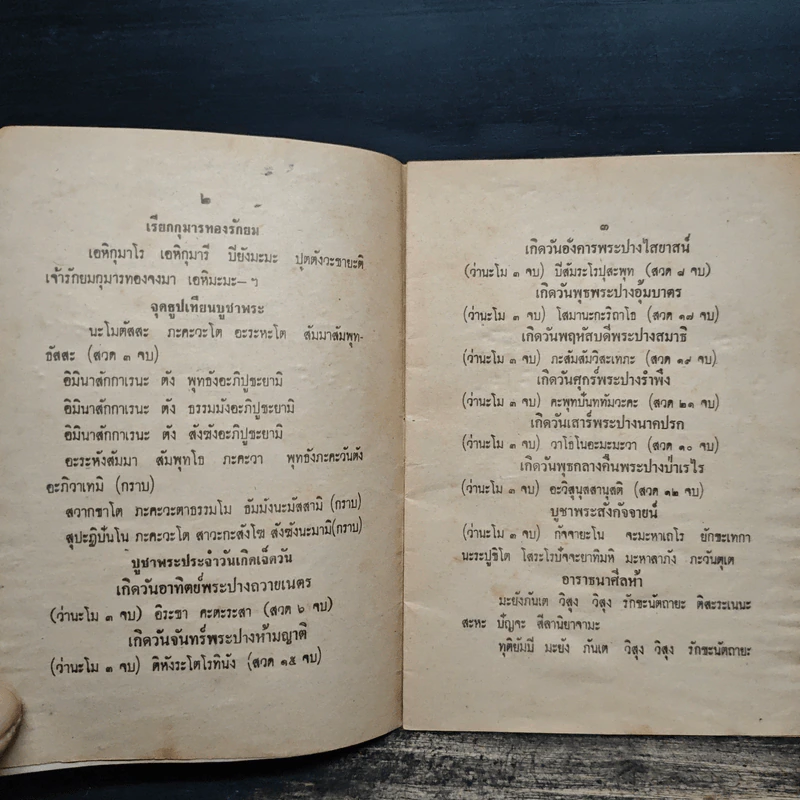 ๒
เรียกกุมารทองรักยม
เอหิกุมาโร เอหิกุมารี ปิยังมะมะ ปุตตังวะชายะติ
เจ้ารักยมกุมารทองจงมา เอหิมะมะ–ฯ
จุดธูปเทียนบูชาพระ
นะโมตัสสะ ภะคะวะโต อะระหะโต สัมมาสัมพุท-
ธัสสะ (สวด ๓ จบ)
อิมินาสักกาเรนะ ตัง พุทธังอะภิปูชะยามิ
อิมินาสักกาเรนะ ตัง ธรรมมังอะภิปูชะยามิ
อิมินาสักกาเรนะ ตัง สังฆังอะภิปูชะยามิ
อะระหังสัมมา สัมพุทโธ ภะคะวา พุทธังภะคะวันตัง
อะภิวาเทมิ (กราบ)
สวากขาโต ภะคะวะตาธรรมโม ธัมมังนะมัสสามิ (กราบ)
สุปะฏิปันโน ภะคะวะโต สาวะกะสังโฆ สังฆังนะมามิ(กราบ)
บูชาพระประจำวันเกิดเจ็ดวัน
เกิดวันอาทิตย์พระปางถวายเนตร
(ว่านะโม ๓ จบ) อิระชา คะตะระสา (สวด ๖ จบ)
เกิดวันจันทร์พระปางห้ามญาติ
(ว่านะโม ๓ จบ) ติหังระโตโรทินัง (สวด ๑๕ จบ)
๓
เกิดวันอังคารพระปางไสยาสน์
(ว่านะโม ๓ จบ) ปิสัมระโรปุสะพุท (สวด ๘ จบ)
เกิดวันพุธพระปางอุ้มบาตร
(ว่านะโม ๓ จบ) โสมานะกะริถาโธ (สวด ๑๗ จบ)
เกิดวันพฤหัสบดีพระปางสมาธิ
(ว่านะโม ๓ จบ) ภะสัมสัมวิสะเทภะ (สวด ๑๙ จบ)
เกิดวันศุกร์พระปางรำพึง
(ว่านะโม ๓ จบ) คะพุทปันททัมวะคะ (สวด ๒๑ จบ)
เกิดวันเสาร์พระปางนาคปรก
(ว่านะโม ๓ จบ) วาโธโนอะมะมะวา (สวด ๑๐ จบ)
เกิดวันพุธกลางคืนพระปางป่าเรไร
(ว่านะโม ๓ จบ) อะวิสุนุสสานุสติ (สวด ๑๒ จบ)
บูชาพระสังกัจจายน์
(ว่านะโม ๓ จบ) กัจจายะโน จะมะหาเถโร ยักขะเทกา
นะระปูชิโต โสระโรปัจจะยาทิมหิ มะหาลาภัง ภะวันตุเต
อาราธนาศีลห้า
มะยังภันเต วิสุง วิสุง รักขะนัตถายะ ติสะระเนนะ
สะหะ ปัญจะ สีลานิยาจามะ
ทุติยัมปิ มะยัง ภันเต วิสุง วิสุง รักขะนัตถายะ